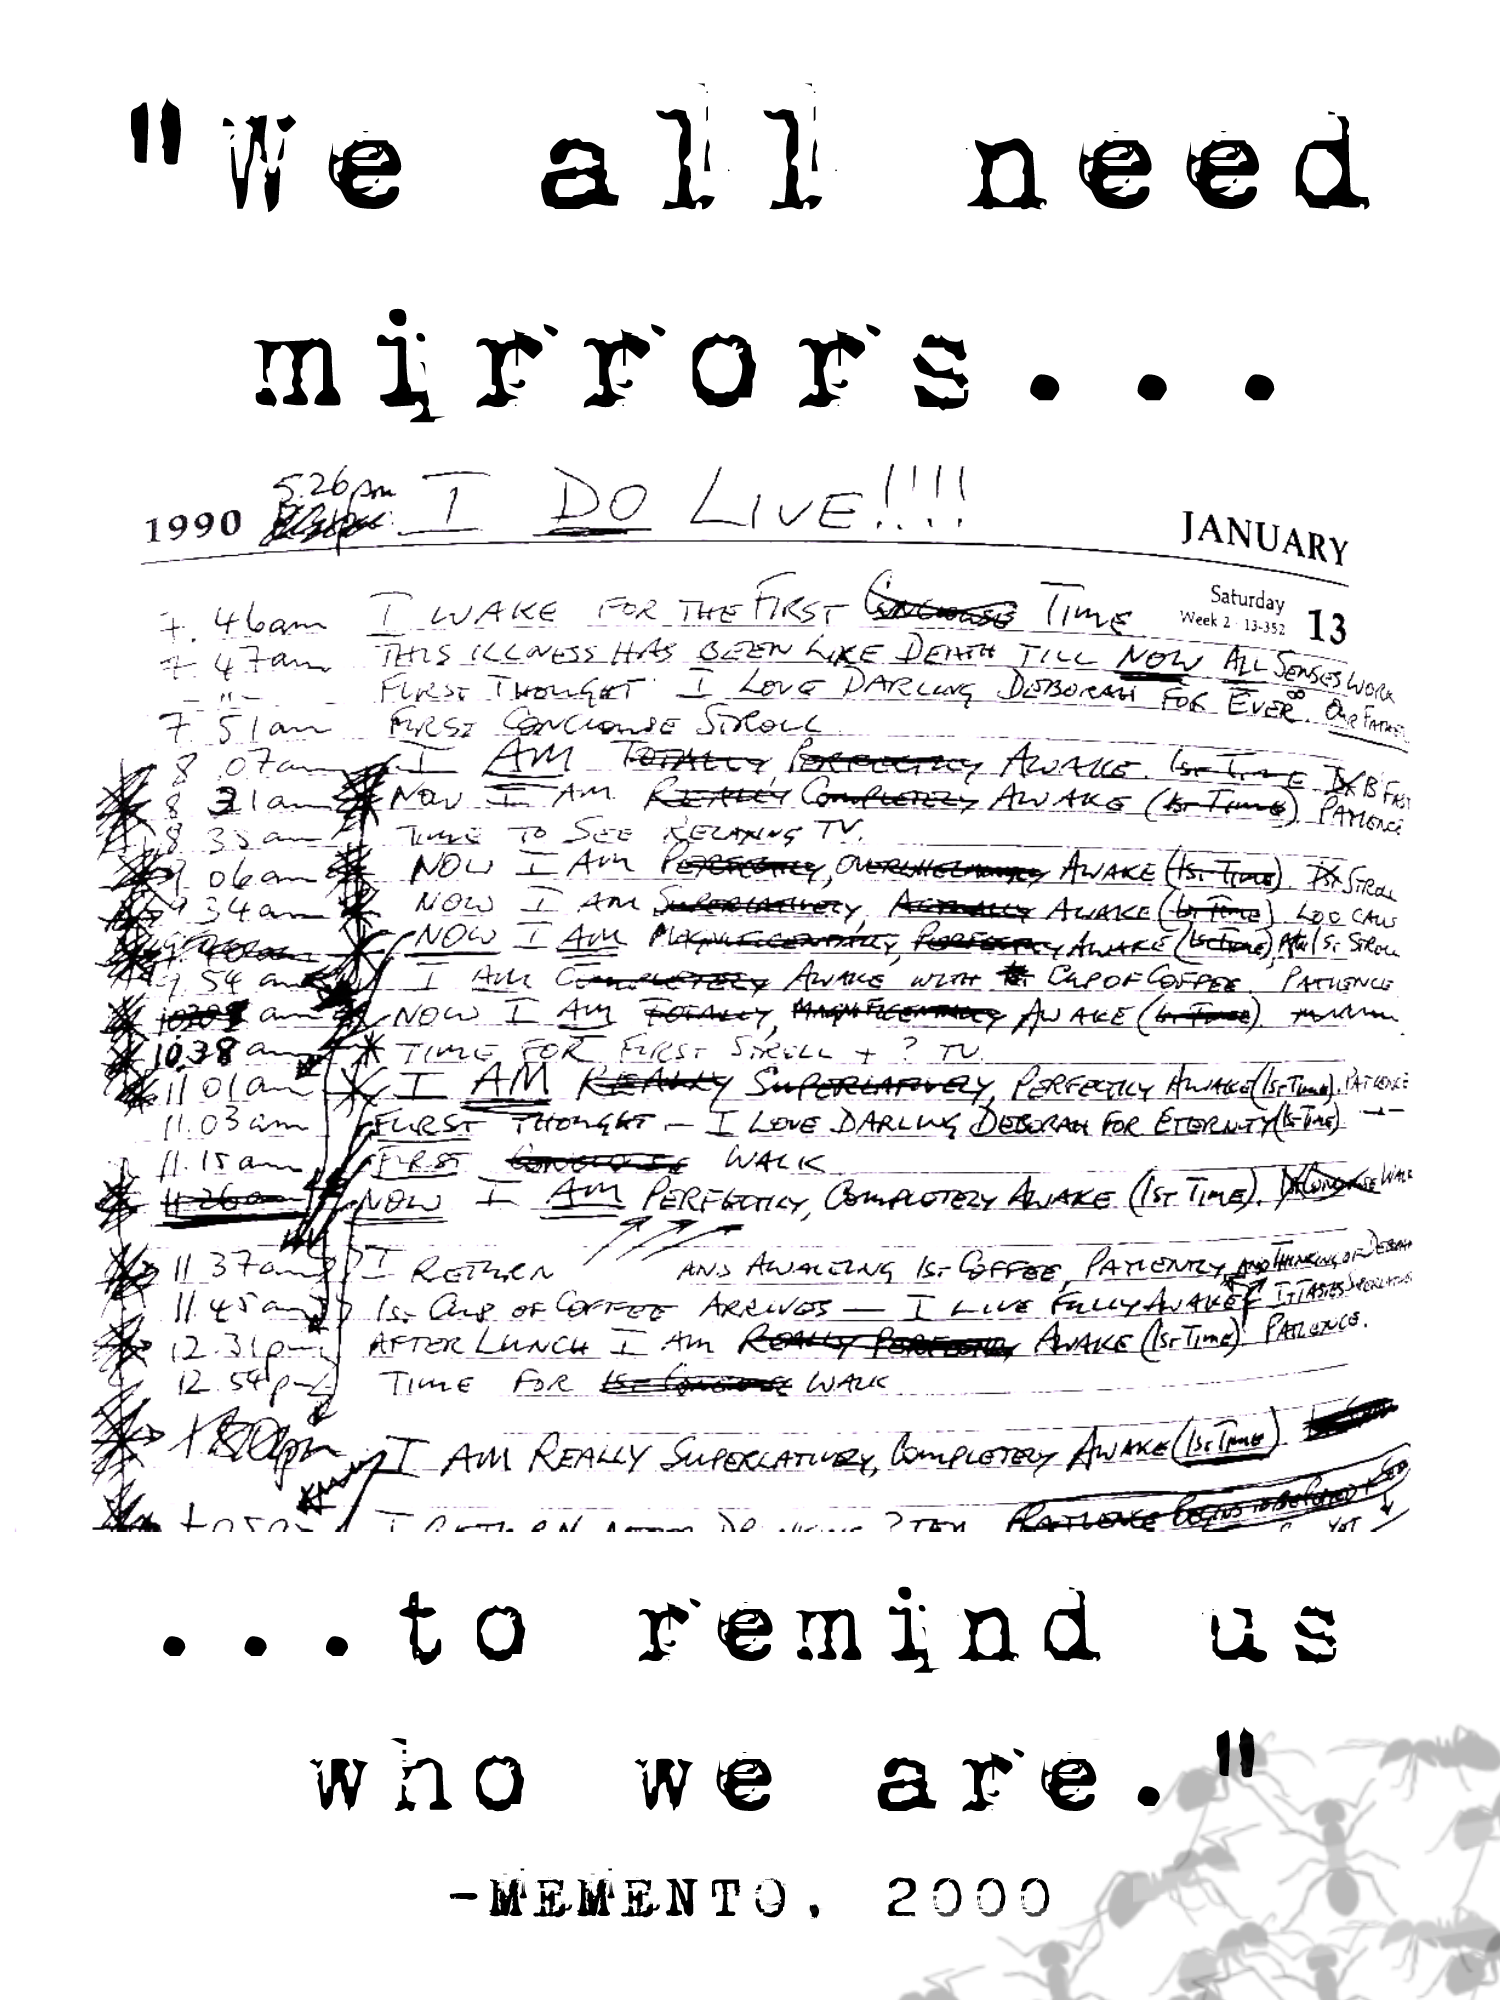 "We all need
mirrors...
5.26pm I DO LIVE!!!!
1990 JANUARY
Saturday
Week 2 · 13-352 13
7.46am I WAKE FOR THE FIRST TIME
7.47am THIS ILLNESS HAS BEEN LIKE DEATH TILL NOW ALL SENSES WORK
-"- FIRST THOUGHT I LOVE DARLING DEBORAH FOR EVER ∞.
7 51am FIRST CONCIOUSE STROLL
8 07am I AM TOTALLY, PERFECTLY AWAKE. 1ST TIME
8 31am NOW I AM REALLY COMPLETELY AWAKE (1ST TIME) PATIENCE
8 35am TIME TO SEE RELAXING TV.
9 06am NOW I AM PERFECTLY, OVERWHELMINGLY AWAKE (1ST TIME). 1ST STROLL
9 34am NOW I AM SUPERLATIVELY, ACTUALLY AWAKE (1ST TIME)
NOW I AM MAGNIFICENTLY, PERFECTLY AWAKE (1ST TIME), 1ST STROLL
9 54am I AM COMPLETELY AWAKE WITH CUP OF COFFEE. PATIENCE
am NOW I AM TOTALLY, MAGNIFICENTLY AWAKE (1ST TIME).
10.38am TIME FOR FIRST STROLL + ? TV.
11 01am I AM REALLY SUPERLATIVELY, PERFECTLY AWAKE (1ST TIME). PATIENCE
11.03am FIRST THOUGHT — I LOVE DARLING DEBORAH FOR ETERNITY (1ST TIME)
11.15am FIRST CONCIOUSE WALK
11 26am NOW I AM PERFECTLY, COMPLETELY AWAKE (1ST TIME). WALK
11 37am I RETURN AND AWAITING 1ST COFFEE, PATIENTLY AND THINKING OF DEBORAH
11.45am 1ST CUP OF COFFEE ARRIVES — I LIVE FULLY AWAKE IT TASTES SUPERLATIVE
12.31pm AFTER LUNCH I AM REALLY PERFECTLY AWAKE (1ST TIME) PATIENCE.
12.54pm TIME FOR 1ST CONCIOUSE WALK
I AM REALLY SUPERLATIVELY, COMPLETELY AWAKE (1ST TIME)
I RETURN AFTER
...to remind us
who we are."
-MEMENTO, 2000